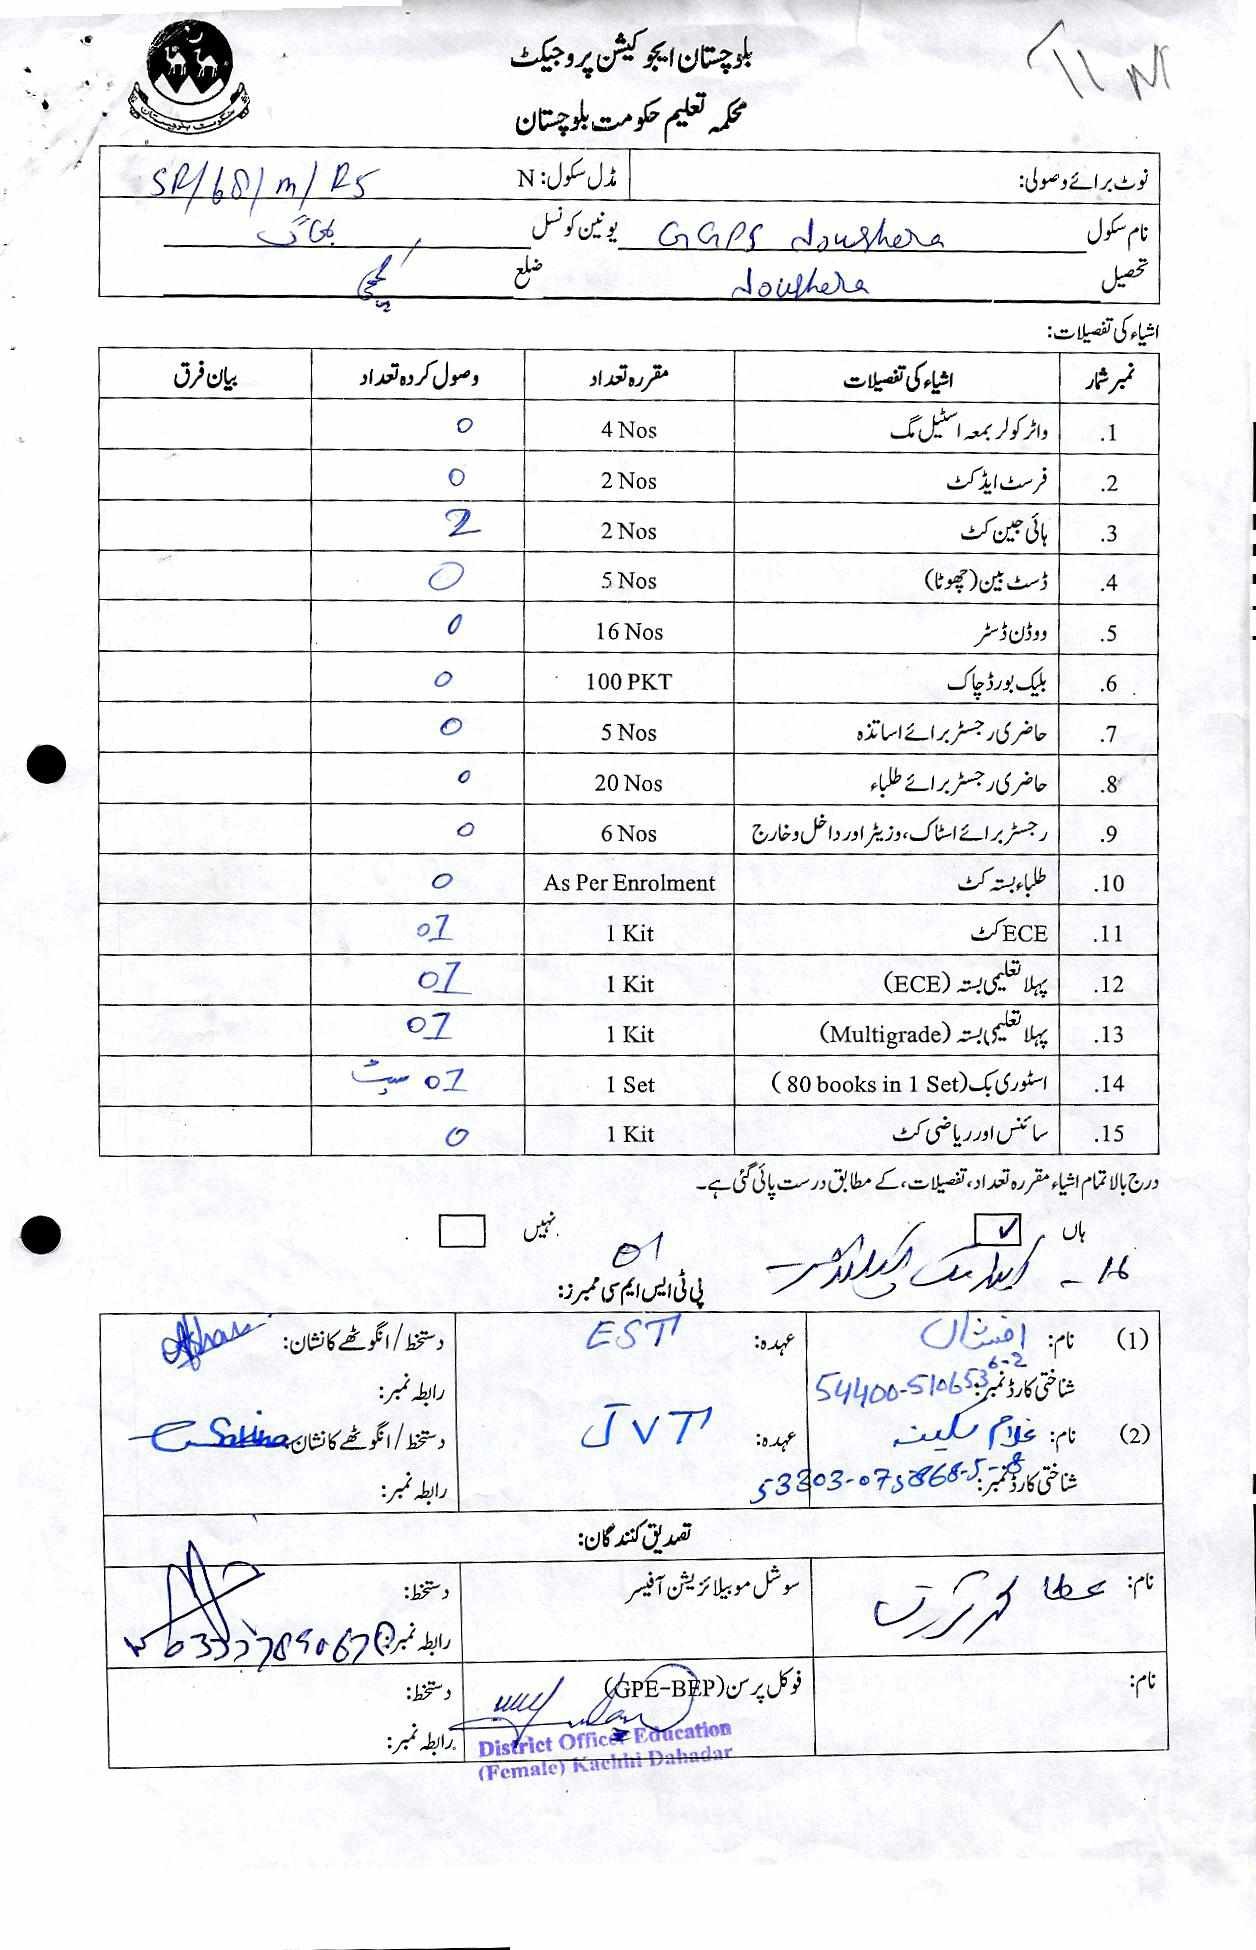 بلوچستان ایجوکیشن پروجیکٹ
محکمہ تعلیم حکومت بلوچستان
حکومت بلوچستان
نوٹ برائے وصولی: مڈل سکول: N SR/68/m/R5
نام سکول GGPS Noushera یونین کونسل بھاگ
تحصیل Noushera ضلع کچھی
اشیاء کی تفصیلات:
نمبر شمار اشیاء کی تفصیلات مقررہ تعداد وصول کردہ تعداد بیان فرق
.1 واٹر کولر بمعہ اسٹیل مگ 4 Nos 0
.2 فرسٹ ایڈ کٹ 2 Nos 0
.3 ہائی جین کٹ 2 Nos 2
.4 ڈسٹ بین (چھوٹا) 5 Nos 0
.5 ووڈن ڈسٹر 16 Nos 0
.6 بلیک بورڈ چاک 100 PKT 0
.7 حاضری رجسٹر برائے اساتذہ 5 Nos 0
.8 حاضری رجسٹر برائے طلباء 20 Nos 0
.9 رجسٹر برائے اسٹاک، وزیٹر اور داخل و خارج 6 Nos 0
.10 طلباء بستہ کٹ As Per Enrolment 0
.11 ECE کٹ 1 Kit 01
.12 پہلا تعلیمی بستہ (ECE) 1 Kit 01
.13 پہلا تعلیمی بستہ (Multigrade) 1 Kit 01
.14 اسٹوری بک (80 books in 1 Set) 1 Set 01 سیٹ
.15 سائنس اور ریاضی کٹ 1 Kit 0
درج بالا تمام اشیاء مقررہ تعداد، تفصیلات، کے مطابق درست پائی گئی ہے۔
ہاں ✓ نہیں
16 - 01
پی ٹی ایس ایم سی ممبرز:
(1) نام: افشاں عہدہ: EST دستخط / انگوٹھے کا نشان: Afshan
شناختی کارڈ نمبر: 54400-5106536-2 رابطہ نمبر:
(2) نام: غلام سکینہ عہدہ: JVT دستخط / انگوٹھے کا نشان: Sakina
شناختی کارڈ نمبر: 53303-075868-5-8 رابطہ نمبر:
تصدیق کنندگان:
نام: عطا سوشل موبیلائزیشن آفیسر دستخط:
رابطہ نمبر:
نام: فوکل پرسن (GPE-BEP) دستخط:
رابطہ نمبر:
District Officer Education
(Female) Kachhi Dahadar